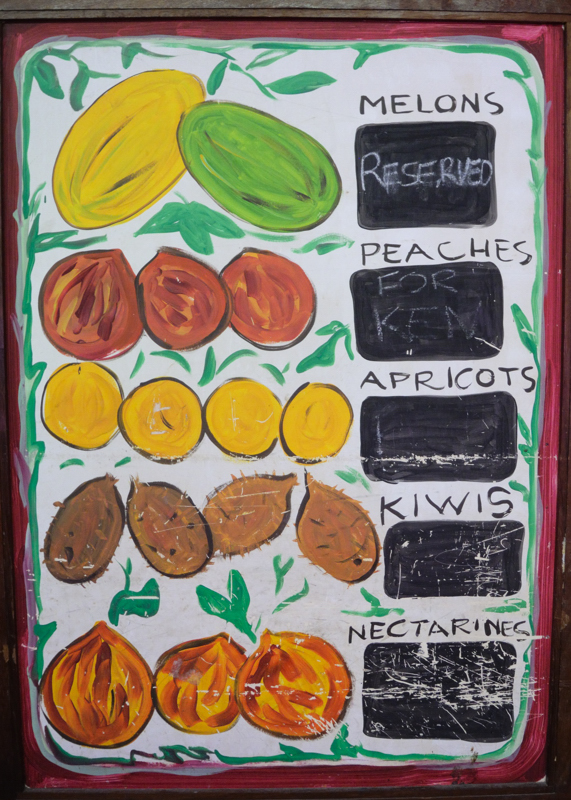 MELONS
RESERVED
PEACHES
FOR
KEN
APRICOTS
KIWIS
NECTARINES